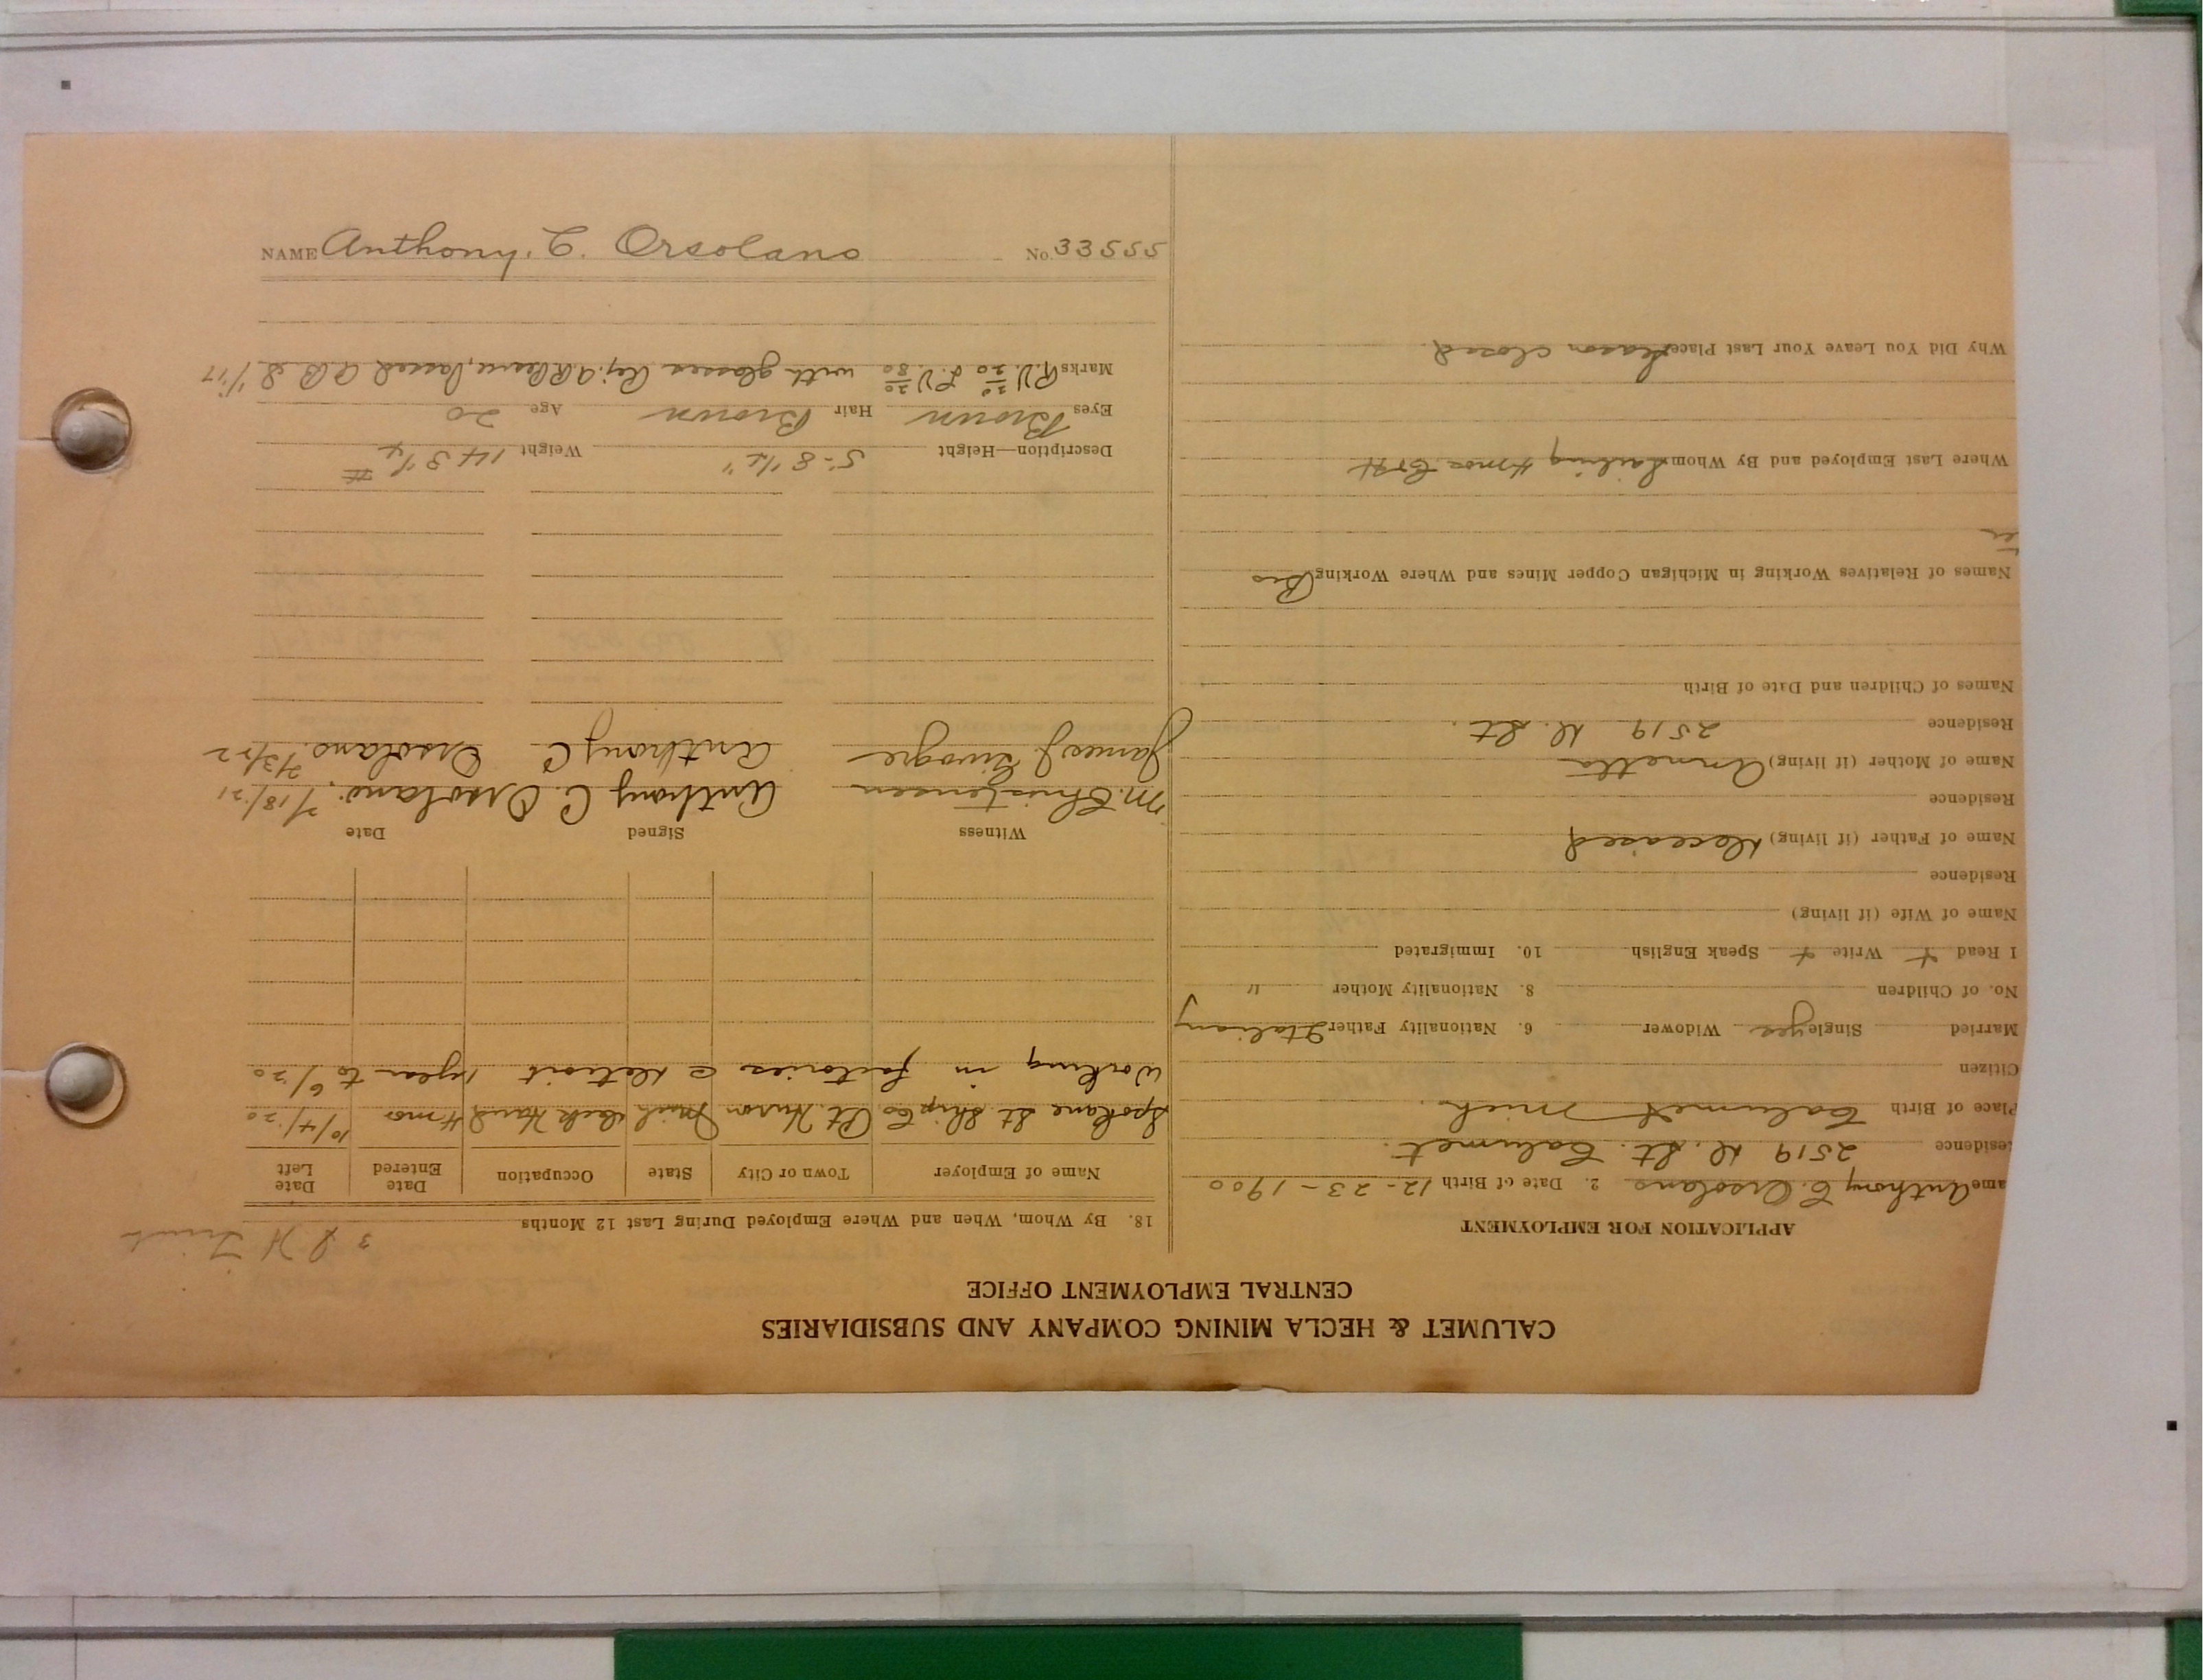 CALUMET & HECLA MINING COMPANY AND SUBSIDIARIES
CENTRAL EMPLOYMENT OFFICE
APPLICATION FOR EMPLOYMENT
ame Anthony C. Orsolano 2. Date of Birth 12-23-1900
esidence 2519 D. St. Calumet.
Place of Birth Calumet Mich.
Citizen
Married Single yes Widower 6. Nationality Father Italian
No. of Children 8. Nationality Mother "
1 Read + Write + Speak English 10. Immigrated
Name of Wife (if living)
Residence
Name of Father (if living) Deceased
Residence
Name of Mother (if living) Annetta
Residence 2519 D. St.
Names of Children and Date of Birth
Names of Relatives Working in Michigan Copper Mines and Where Working Bro
Where Last Employed and By Whom Sailing 4 mos C+H
Why Did You Leave Your Last Place Season closed.
18. By Whom, When and Where Employed During Last 12 Months
Name of Employer Town or City State Occupation Date Entered Date Left
Spokane St. Ship Co Pt. Huron Mich Deck Hand 4 mos 10/4/20
Working in factories @ Detroit 1 year to 6/20
Witness Signed Date
M. Christensen Anthony C. Orsolano. 7/18/21
James J Anthony C Orsolano. 7/3/22
Description—Height 5-8 1/2" Weight 143 1/4 #
Eyes Brown Hair Brown Age 20
Marks R.V. 20/20 L.V. 20/80 with glasses Rej.
NAME Anthony. C. Orsolano No. 33555